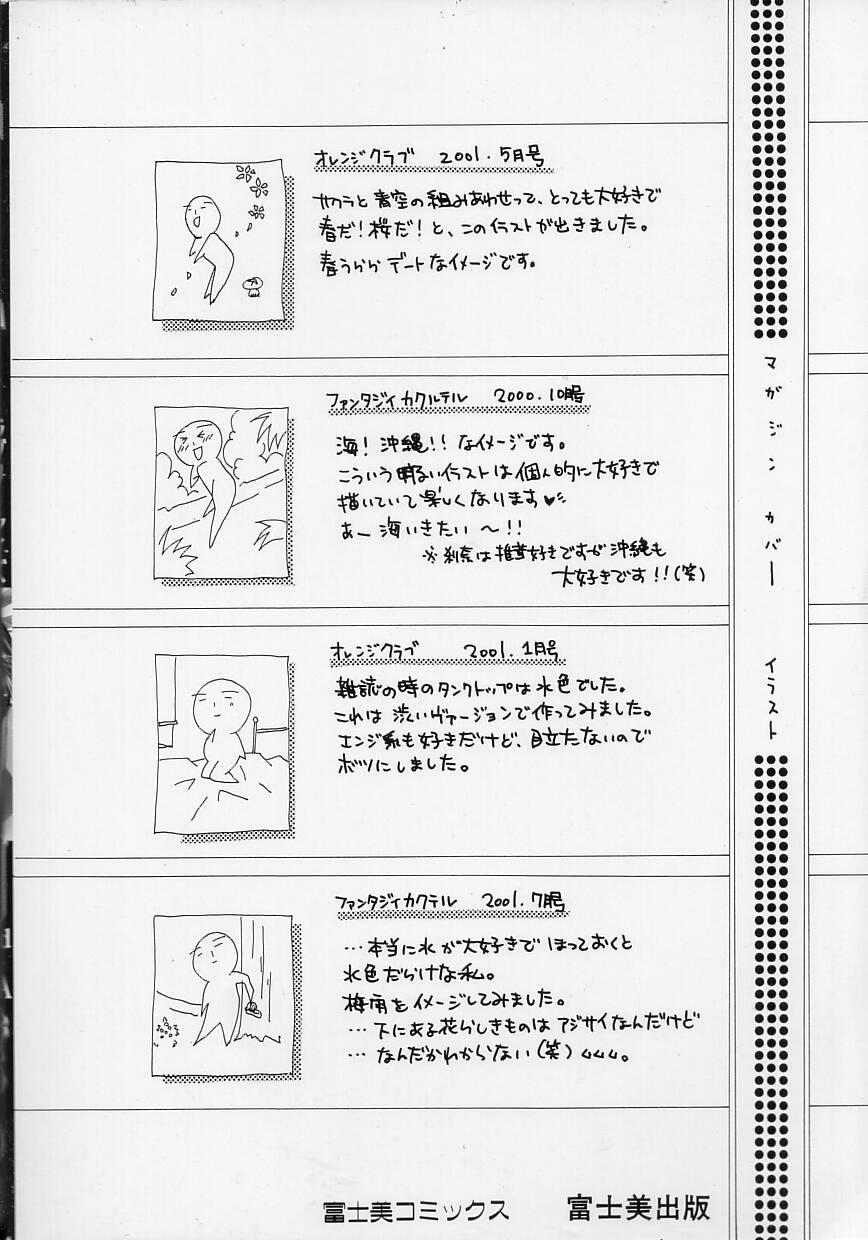 オレンジクラブ 2001.5月号
サクラと青空の組みあわせって、とっても大好きで
春だ!桜だ!と、このイラストが出きました。
春うらら デートなイメージです。
ファンタジィカクルテル 2000.10月号
海!沖縄!!なイメージです。
こういう明るいイラストは個人的に大好きで
描いていて楽しくなります♥
あー海いきたい〜!!
※刹奈は推茸好きですが沖縄も
大好きです!!(笑)
オレンジクラブ 2001.1月号
雑誌の時のタンクトップは水色でした。
これは渋いヴァージョンで作ってみました。
エンジ系も好きだけど、目立たないので
ボツにしました。
ファンタジィカクテル 2001.7月号
…本当に水が大好きで ほっておくと
水色だらけな私。
梅雨をイメージしてみました。
…下にある花らしきものはアジサイなんだけど
…なんだかわからない(笑)
マガジン カバー イラスト
富士美コミックス 富士美出版